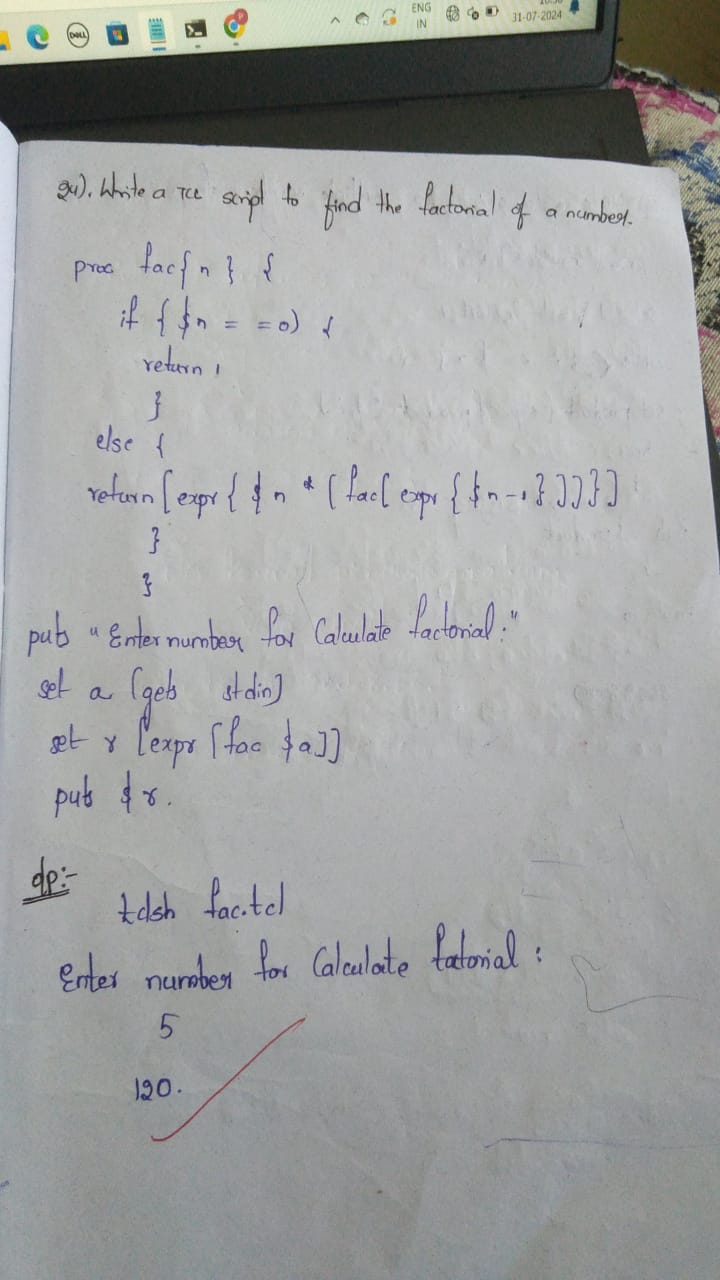 ENG
IN
31-07-2024
DELL
24). Write a TCL script to find the factorial of a number.
proc fac{ n } {
if { $n = = 0) {
return 1
}
else {
return [expr { $n * [fac[ expr { $n-1 } ]]}]
}
}
puts "Enter number for Calculate factorial:"
set a [gets stdin]
set r [expr [fac $a]]
puts $r.
op:-
tclsh fac.tcl
Enter number for Calculate fatorial :
5
120.